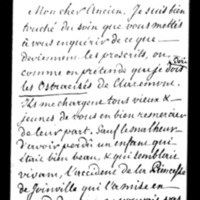 Mon cher Ancien. Je suis bien
touché du soin que vous mettez
à vous enquérir de ce que
deviennent les proscrits, ou
comme on prétend que je dois dire
les Ostracisés de Claremont.
Ils me chargent tous vieux &
jeunes de vous en bien remercier
de leur part. Sauf le malheur
d'avoir perdu un enfant qui
était bien beau, & qui semblait
vivant, l'accident de la Princesse
de Joinville qui l'a mise en
pas